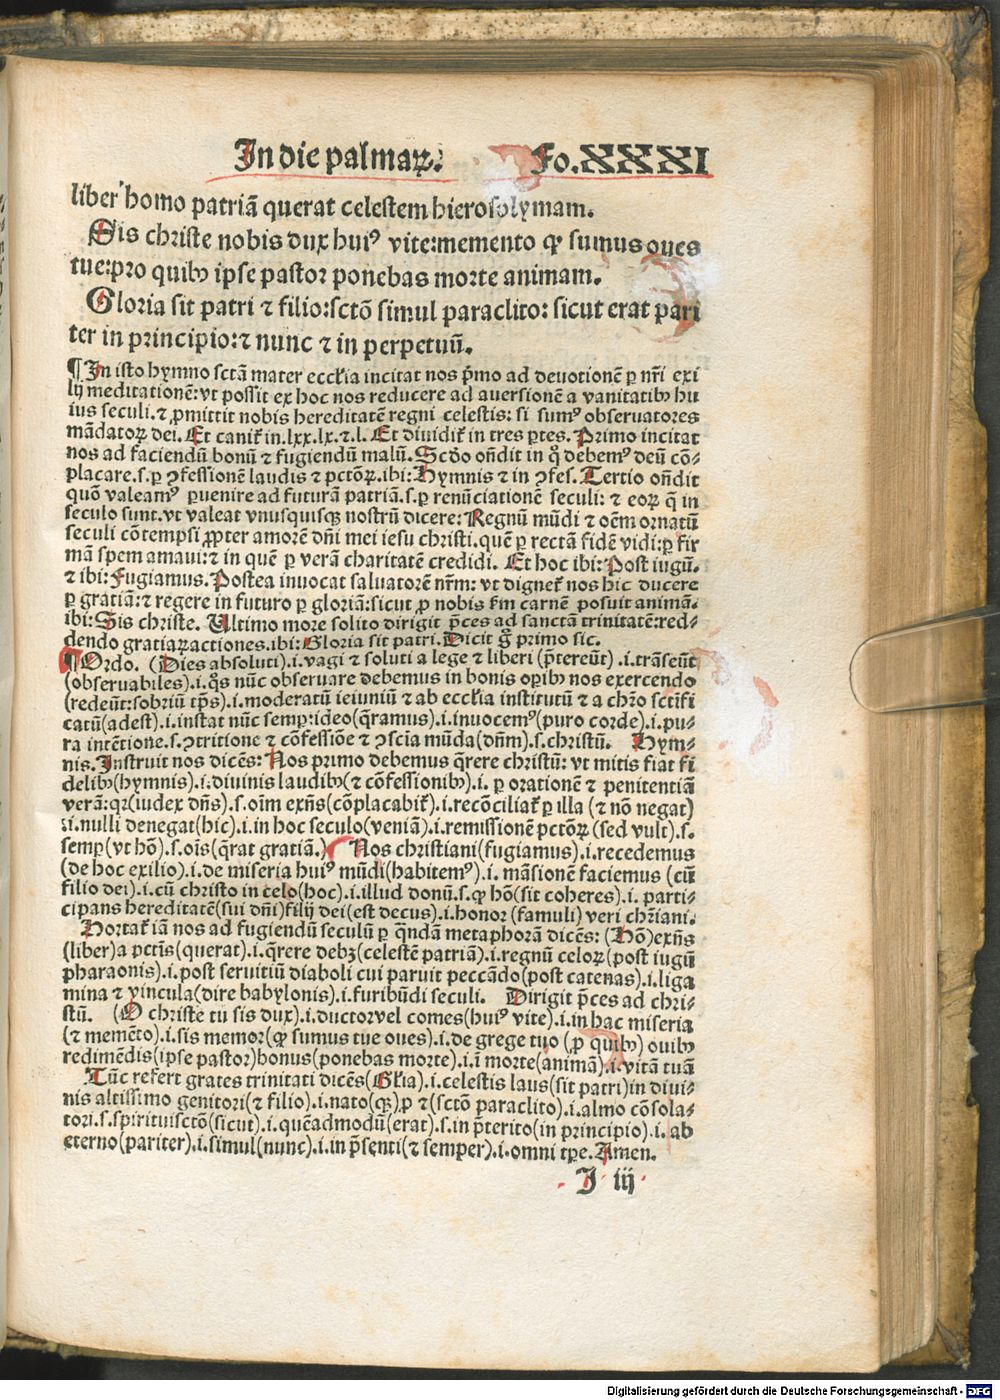 In die palmaꝝ. Fo.XXXI
liber homo patriā querat celestem hierosolymam.
Sis christe nobis dux huiꝰ vite:memento ꝙ sumus oues
tue:pro quibꝫ ipse pastor ponebas morte animam.
Gloria sit patri ⁊ filio:sctō simul paraclito: sicut erat pari
ter in principio:⁊ nunc ⁊ in perpetuū.
¶ In isto hymno sctām mater eccłia incitat nos p̄mo ad deuotionē ꝑ nr̄i exi
lij meditationē:vt possit ex hoc nos reducere ad auersionē a vanitatibꝫ hu
ius seculi.⁊ ꝓmittit nobis hereditatē regni celestis: si sumꝰ obseruatores
mādatoꝝ dei. Et canit᷑ in.lxx.lx.⁊.l. Et diuidit᷑ in tres ꝑtes. Primo incitat
nos ad faciendū bonū ⁊ fugiendū malū. Scd̄o on̄dit in q̊ debemꝰ deū cō-
placare.s.ꝑ ꝯfessionē laudis ⁊ pctōꝝ.ibi:Hymnis ⁊ in ꝯfes. Tertio on̄dit
quō valeamꝰ ꝑuenire ad futurā patriā.s.ꝑ renūciationē seculi: ⁊ eoꝝ q̄ in
seculo sunt.vt valeat vnusquisqꝫ nostrū dicere: Regnū mūdi ⁊ oēm ornatū
seculi cōtempsi ꝓpter amorē dn̄i mei iesu christi.quē ꝑ rectā fidē vidi:ꝑ fir
mā spem amaui:⁊ in quē ꝑ verā charitatē credidi. Et hoc ibi: Post iugū.
⁊ ibi:Fugiamus.Postea inuocat saluatorē nr̄m: vt dignet᷑ nos hic ducere
ꝑ gratiā:⁊ regere in futuro ꝑ gloriā:sicut ꝓ nobis ẜm carnē posuit animā.
ibi: Sis christe. Ultimo more solito dirigit p̄ces ad sanctā trinitatē:red-
dendo gratiaꝝ actiones.ibi: Gloria sit patri. Dicit g̊ primo sic.
¶ Ordo. (Dies absoluti).i.vagi ⁊ soluti a lege ⁊ liberi (p̄tereūt) .i.trāseūt
(obseruabiles).i.q̊s nūc obseruare debemus in bonis oꝑibꝫ nos exercendo
(redeūt:sobriū tp̄s).i.moderatū ieiuniū ⁊ ab eccłia institutū ⁊ a chr̄o sctīfi
catū(adest).i.instat nūc semꝑ:ideo(q̄ramus).i.inuocemꝰ(puro corde).i.pu-
ra intētione.s.ꝯtritione ⁊ cōfessiōe ⁊ ꝯsciā mūda(dn̄m).s.christū. Hym-
nis.Instruit nos dicēs: Nos primo debemus q̄rere christū: vt mitis fiat fi
delibꝫ(hymnis).i.diuinis laudibꝫ(⁊ cōfessionibꝫ).i. ꝑ orationē ⁊ penitentiā
verā:qr(iudex dn̄s).s.oīm exn̄s(cōplacabit᷑).i.recōciliat᷑ ꝑ illa (⁊ nō negat)
.i.nulli denegat(hic).i.in hoc seculo(veniā).i.remissionē pctōꝝ (sed vult).s.
semꝑ(vt hō).s.oīs(q̄rat gratiā.) Nos christiani(fugiamus).i.recedemus
(de hoc exilio).i.de miseria huiꝰ mūdi(habitemꝰ).i. māsionē faciemus (cū
filio dei).i.cū christo in celo(hoc).i.illud donū.s.ꝙ hō(sit coheres).i. parti-
cipans hereditatē(sui dn̄i)filij dei(est decus).i.honor (famuli) veri chr̄iani.
Hortat᷑ iā nos ad fugiendū seculū ꝑ q̄ndā metaphorā dicēs: (Hō)exn̄s
(liber)a pctīs(querat).i.q̄rere debꝫ(celestē patriā).i.regnū celoꝝ(post iugū
pharaonis).i.post seruitiū diaboli cui paruit peccādo(post catenas).i.liga
mina ⁊ vincula(dire babylonis).i.furibūdi seculi. Dirigit p̄ces ad chri-
stū. (O christe tu sis dux).i.ductor vel comes(huiꝰ vite).i.in hac miseria
(⁊ memēto).i.sis memor(ꝙ sumus tue oues).i.de grege tuo (ꝓ quibꝫ) ouibꝫ
redimēdis(ipse pastor)bonus(ponebas morte).i.ī morte(animā).i.vitā tuā
Tūc refert grates trinitati dicēs(Głia).i.celestis laus(sit patri)in diui-
nis altissimo genitori(⁊ filio).i.nato(qꝫ).ꝓ ⁊(sctō paraclito).i.almo cōsola-
tori.s.spirituisctō(sicut).i.quēadmodū(erat).s.in p̄terito(in principio).i. ab
eterno(pariter).i.simul(nunc).i.in p̄senti(⁊ semper).i.omni tꝑe. Amen.
I iij
Digitalisierung gefördert durch die Deutsche Forschungsgemeinschaft - DFG